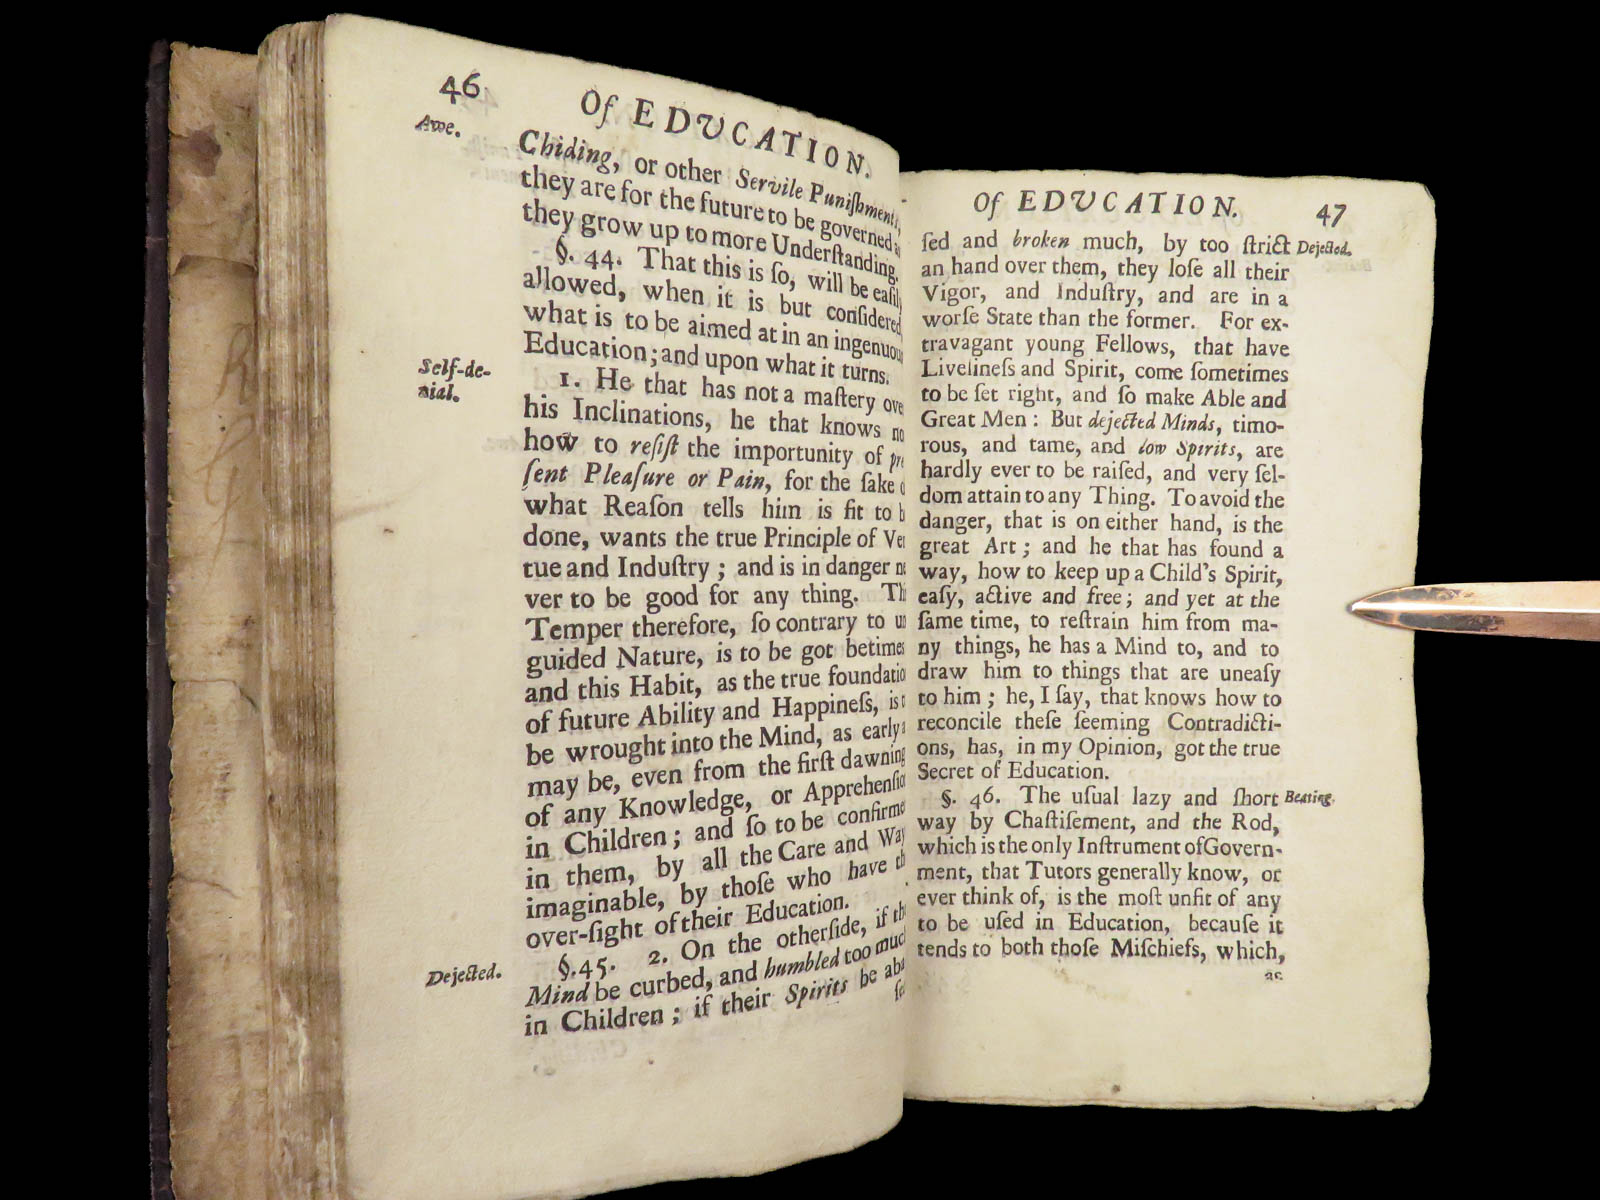 46
Of EDUCATION.
Awe.
Chiding, or other Servile Puniſhments,
they are for the future to be governed as
they grow up to more Underſtanding.
§. 44. That this is ſo, will be eaſily
allowed, when it is but conſidered
what is to be aimed at in an ingenuous
Education; and upon what it turns.
Self-de-
nial.
1. He that has not a maſtery over
his Inclinations, he that knows not
how to reſiſt the importunity of pre
ſent Pleaſure or Pain, for the ſake o
what Reaſon tells him is fit to b
done, wants the true Principle of Ver
tue and Induſtry; and is in danger ne
ver to be good for any thing. Thi
Temper therefore, ſo contrary to un
guided Nature, is to be got betimes
and this Habit, as the true foundation
of future Ability and Happineſs, is to
be wrought into the Mind, as early a
may be, even from the firſt dawning
of any Knowledge, or Apprehenſion
in Children; and ſo to be confirmed
in them, by all the Care and Way
imaginable, by thoſe who have th
over-ſight of their Education.
Dejected.
§. 45. 2. On the otherſide, if the
Mind be curbed, and humbled too much
in Children; if their Spirits be aba
ſed
Of EDUCATION.
47
ſed and broken much, by too ſtrict
Dejected.
an hand over them, they loſe all their
Vigor, and Induſtry, and are in a
worſe State than the former. For ex-
travagant young Fellows, that have
Livelineſs and Spirit, come ſometimes
to be ſet right, and ſo make Able and
Great Men: But dejected Minds, timo-
rous, and tame, and low Spirits, are
hardly ever to be raiſed, and very ſel-
dom attain to any Thing. To avoid the
danger, that is on either hand, is the
great Art; and he that has found a
way, how to keep up a Child's Spirit,
eaſy, active and free; and yet at the
ſame time, to reſtrain him from ma-
ny things, he has a Mind to, and to
draw him to things that are uneaſy
to him; he, I ſay, that knows how to
reconcile theſe ſeeming Contradicti-
ons, has, in my Opinion, got the true
Secret of Education.
§. 46. The uſual lazy and ſhort
Beating.
way by Chaſtiſement, and the Rod,
which is the only Inſtrument of Govern-
ment, that Tutors generally know, or
ever think of, is the moſt unfit of any
to be uſed in Education, becauſe it
tends to both thoſe Miſchiefs, which,
as